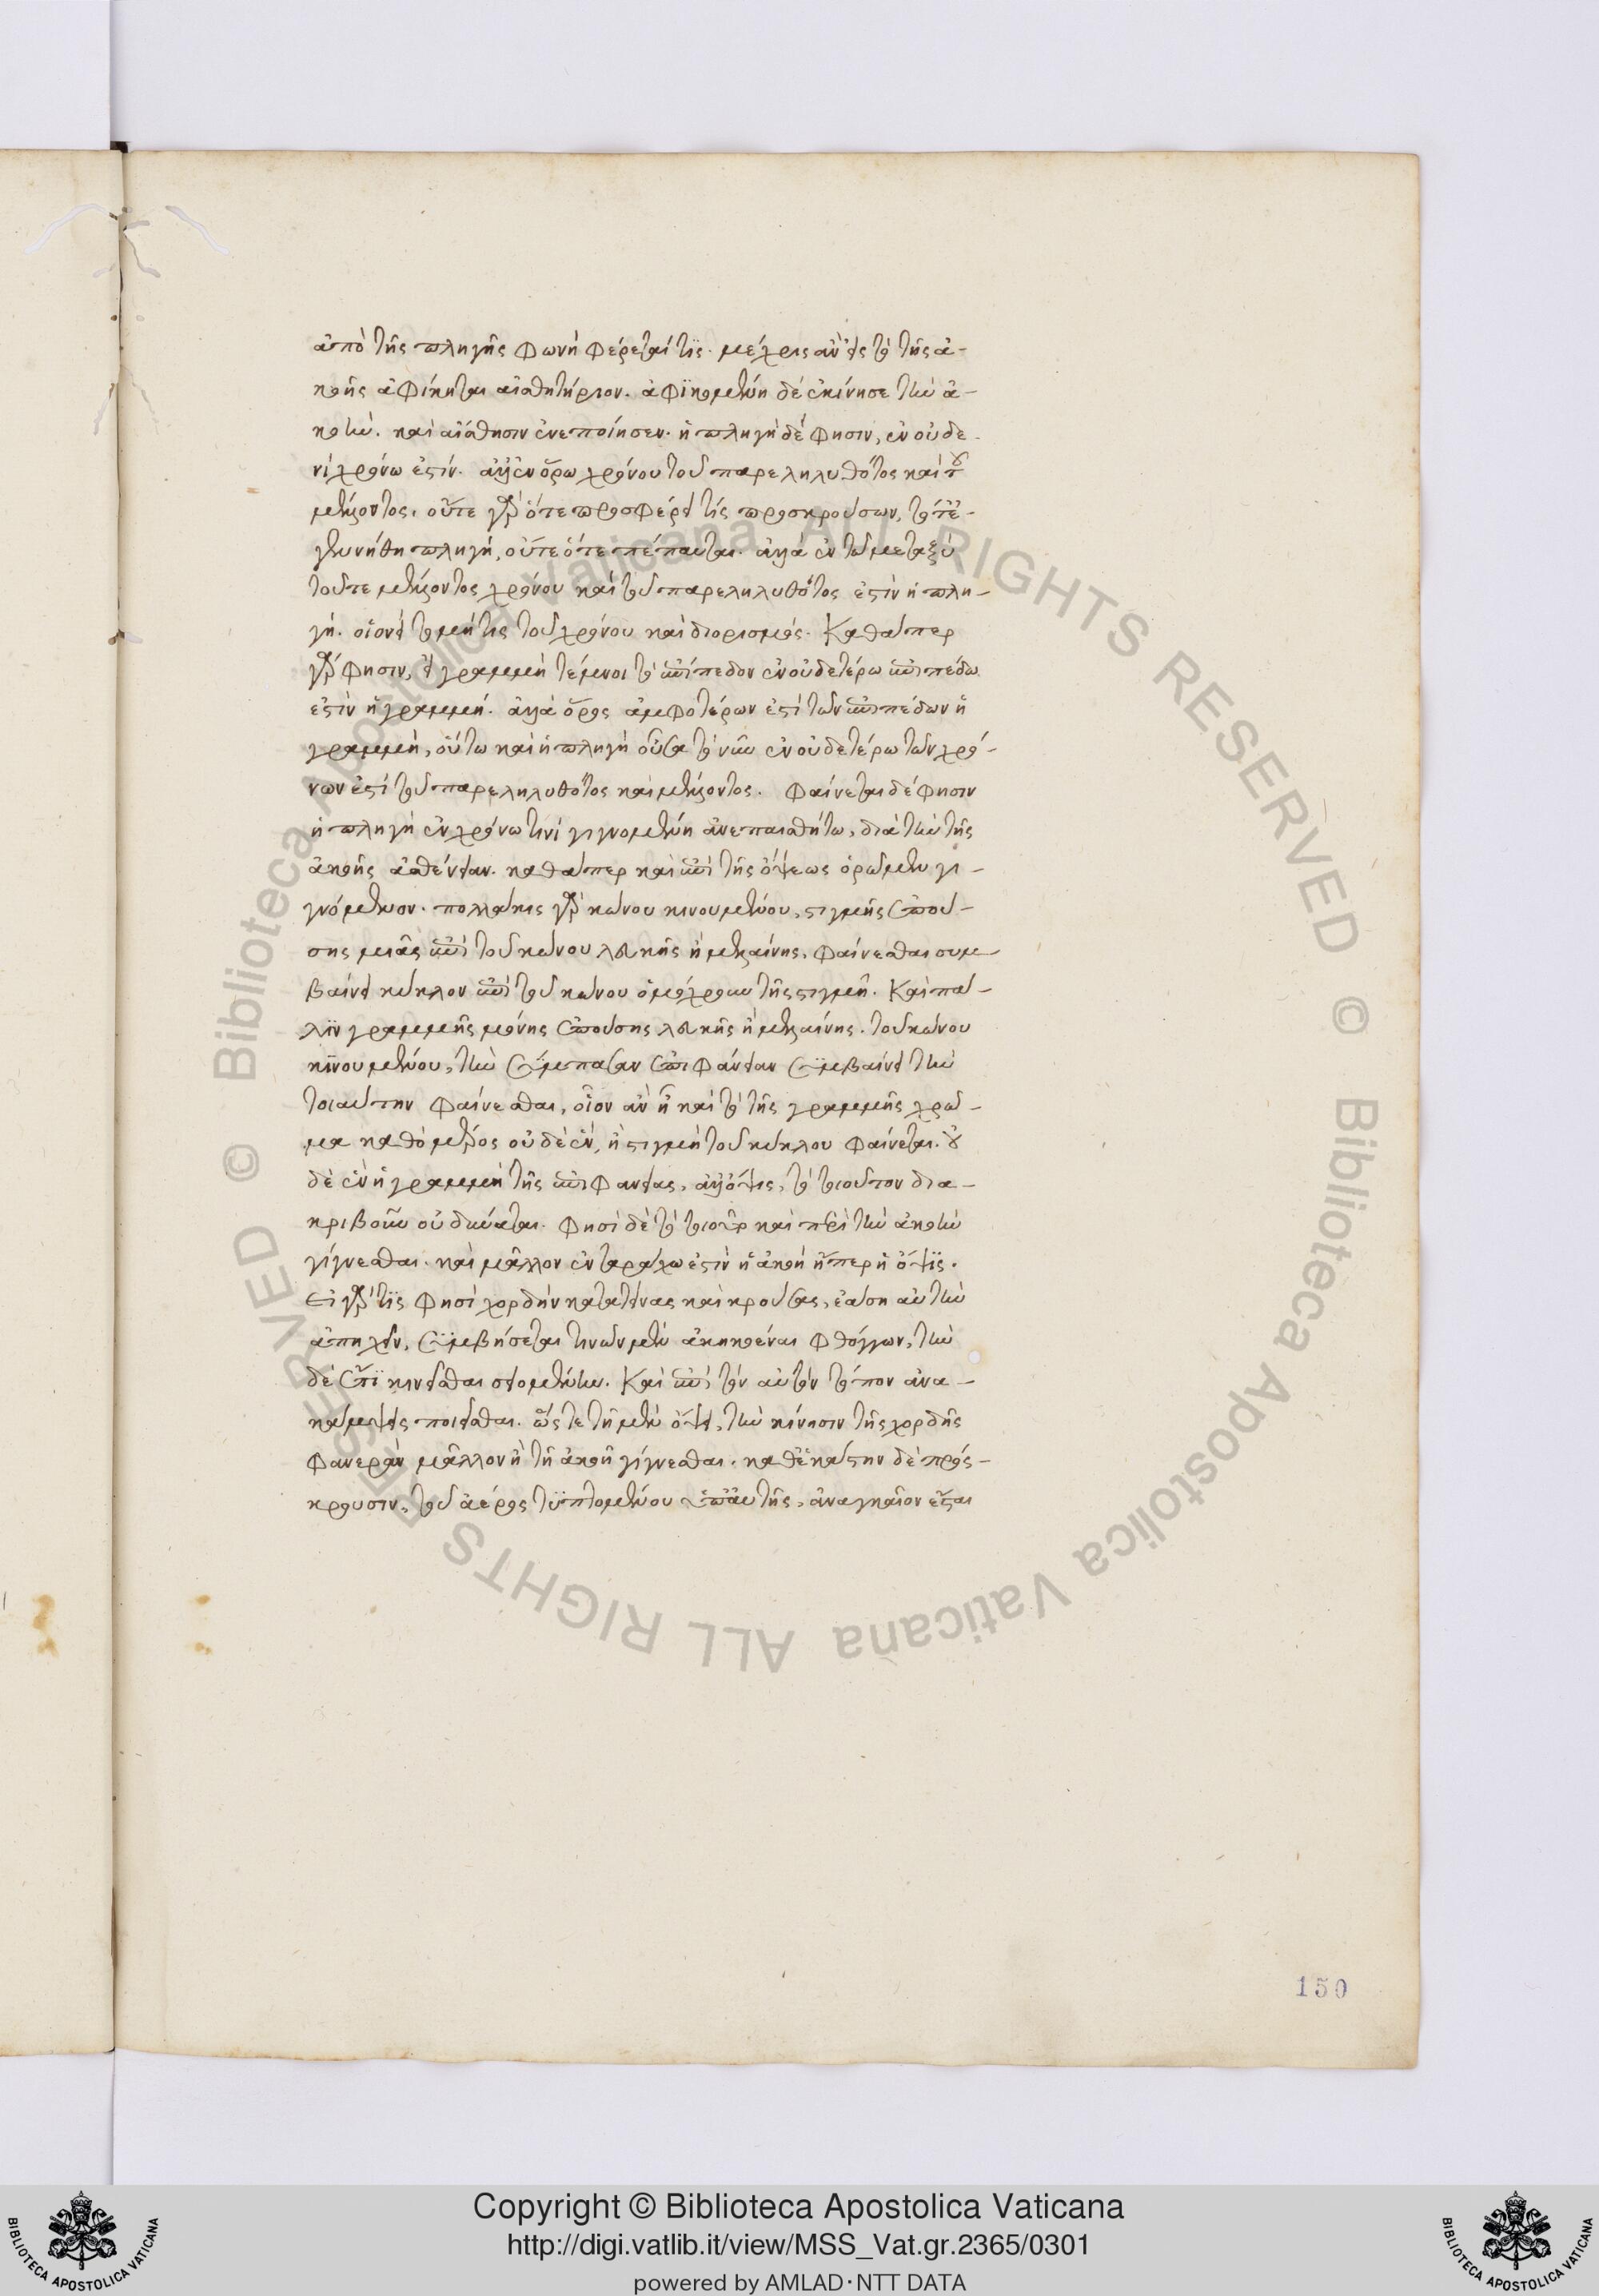 ἀπὸ τῆς πληγῆς φωνὴ φέρεταί τις. μέχρις ἂν εἰς τὸ τῆς ἀ-
κοῆς ἀφίκηται αἰσθητήριον. ἀφικομένη δὲ ἐκίνησε τὴν ἀ-
κοὴν. καὶ αἴσθησιν ἐνεποίησεν. ἡ πληγὴ δέ φησιν, ἐν οὐδε-
νὶ χρόνω ἐστίν. ἀλλ' ἐν ὅρω χρόνου τοῦ παρεληλυθότος καὶ τοῦ
μέλλοντος. οὔτε γὰρ ὅτε προσφέρει τίς προσκρούσων, τότε ἐ-
γεννήθη πληγή, οὔτε ὅτε πέπαυται. ἀλλὰ ἐν τῶ μεταξὺ
τοῦ τε μέλλοντος χρόνου καὶ τοῦ παρεληλυθότος ἐστὶν ἡ πλη-
γή. οἱονεὶ τομή τις τοῦ χρόνου καὶ διορισμός. Καθάπερ
γάρ φησιν, εἰ γραμμὴ τέμνοι τὸ ἐπίπεδον ἐν οὐδετέρω ἐπιπέδω
ἐστὶν ἡ γραμμή. ἀλλὰ ὅρος ἀμφοτέρων ἐστὶ τῶν ἐπιπέδων ἡ
γραμμὴ, οὕτω καὶ ἡ πληγὴ οὖσα τὸ νῦν ἐν οὐδετέρω τῶν χρό-
νων ἐστὶ τοῦ παρεληλυθότος καὶ μέλλοντος. Φαίνεται δέ φησιν
ἡ πληγὴ ἐν χρόνω τινὶ γιγνομένη ἀνεπαισθήτω, διὰ τὴν τῆς
ἀκοῆς ἀσθένειαν. καθάπερ καὶ ἐπὶ τῆς ὄψεως ὁρῶμεν γι-
γνόμενον. πολλάκις γὰρ κώνου κινουμένου, στιγμῆς ἐπού-
σης μιᾶς ἐπὶ τοῦ κώνου λευκῆς ἢ μελαίνης, φαίνεσθαι συμ-
βαίνει κύκλον ἐπὶ τοῦ κώνου ὁμόχρουν τῆ στιγμῆ. Καὶ πά-
λιν γραμμῆς μόνης ἐπούσης λευκῆς ἢ μελαίνης. τοῦ κώνου
κινουμένου, τὴν σύμπασαν ἐπιφάνειαν συμβαίνει τὴν
τοιαύτην φαίνεσθαι, οἷον ἂν ἦ καὶ τὸ τῆς γραμμῆς χρῶ-
μα καθὸ μέρος οὐδὲ ἓν, ἡ στιγμὴ τοῦ κύκλου φαίνεται. οὐ
δὲ ἓν ἡ γραμμὴ τῆς ἐπιφανείας, ἀλλ' ὄψις, τὸ τοιοῦτον δια-
κριβοῦν οὐ δύναται. Φησὶ δὲ τὸ τοιοῦτο καὶ περὶ τὴν ἀκοὴν
γίγνεσθαι. καὶ μᾶλλον ἐν ταράχω ἐστὶν ἡ ἀκοὴ ἤπερ ἡ ὄψις.
Εἰ γάρ τις φησὶ χορδὴν κατατείνας καὶ κρούσας, ἐάση αὐτὴν
ἀπηχεῖν, συμβήσεται τινῶν μὲν ἀκηκοέναι φθόγγων, τὴν
δὲ ἔτι κινεῖσθαι σειομένην. Καὶ ἐπὶ τὸν αὐτὸν τόπον ἀνα-
κάμψεις ποιεῖσθαι. ὥστε τῆ μὲν ὄψει, τὴν κίνησιν τῆς χορδῆς
φανερὰν μᾶλλον ἢ τῆ ἀκοῆ γίγνεσθαι. καθ' ἑκάστην δὲ πρόσ-
κρουσιν, τοῦ ἀέρος τυπτομένου ὑπ' αὐτῆς, ἀναγκαῖον ἐστι
150
Copyright © Biblioteca Apostolica Vaticana
http://digi.vatlib.it/view/MSS_Vat.gr.2365/0301
powered by AMLAD·NTT DATA
BIBLIOTECA APOSTOLICA VATICANA
BIBLIOTECA APOSTOLICA VATICANA
© Biblioteca Apostolica Vaticana ALL RIGHTS RESERVED © Biblioteca Apostolica Vaticana ALL RIGHTS RESERVED